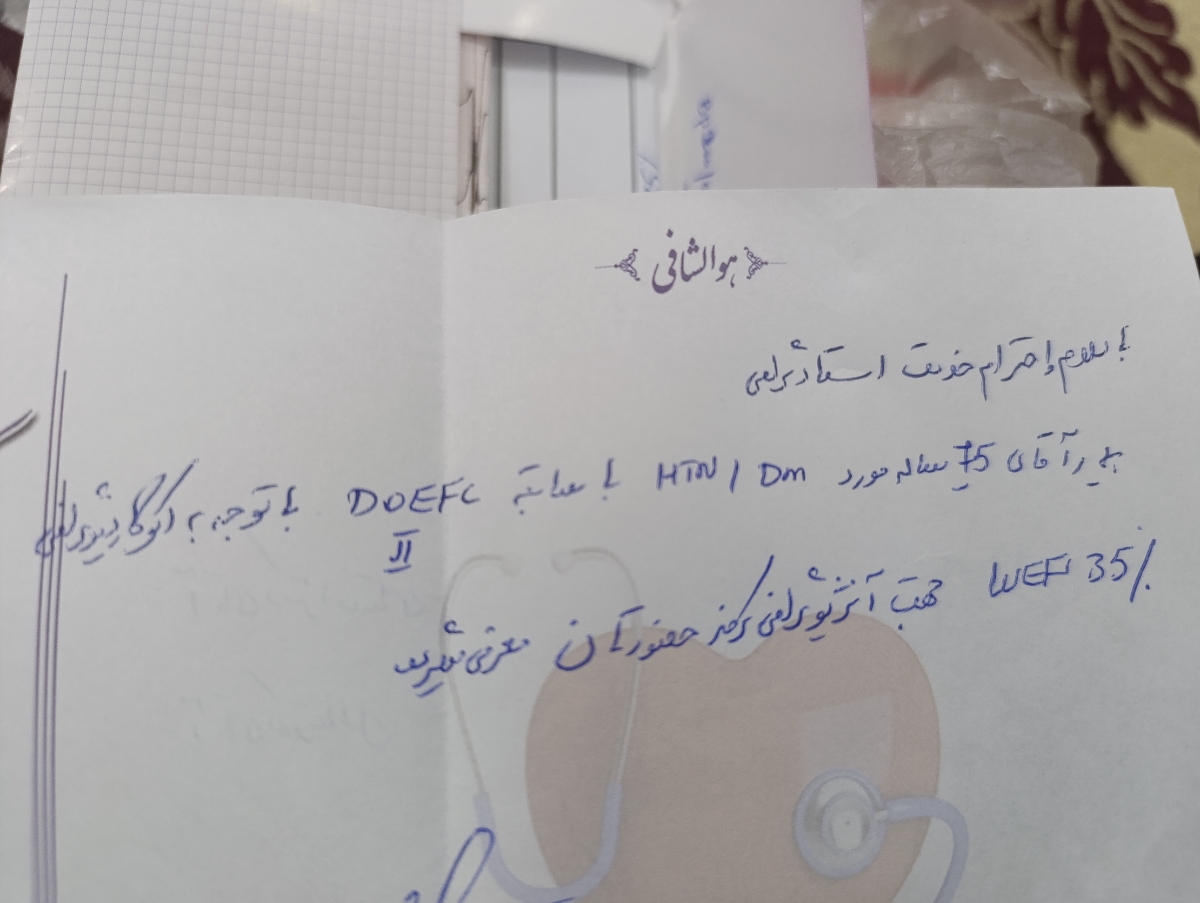 هوالشافی
با سلام و احترام خدمت استاد گرامی
بیمار آقای 75 ساله مورد HTN / DM با سابقه DOEFC با توجه به اکوکاردیوگرافی
II
LVEF 35٪ جهت آنژیوگرافی کرونر حضورتان معرفی میگردد